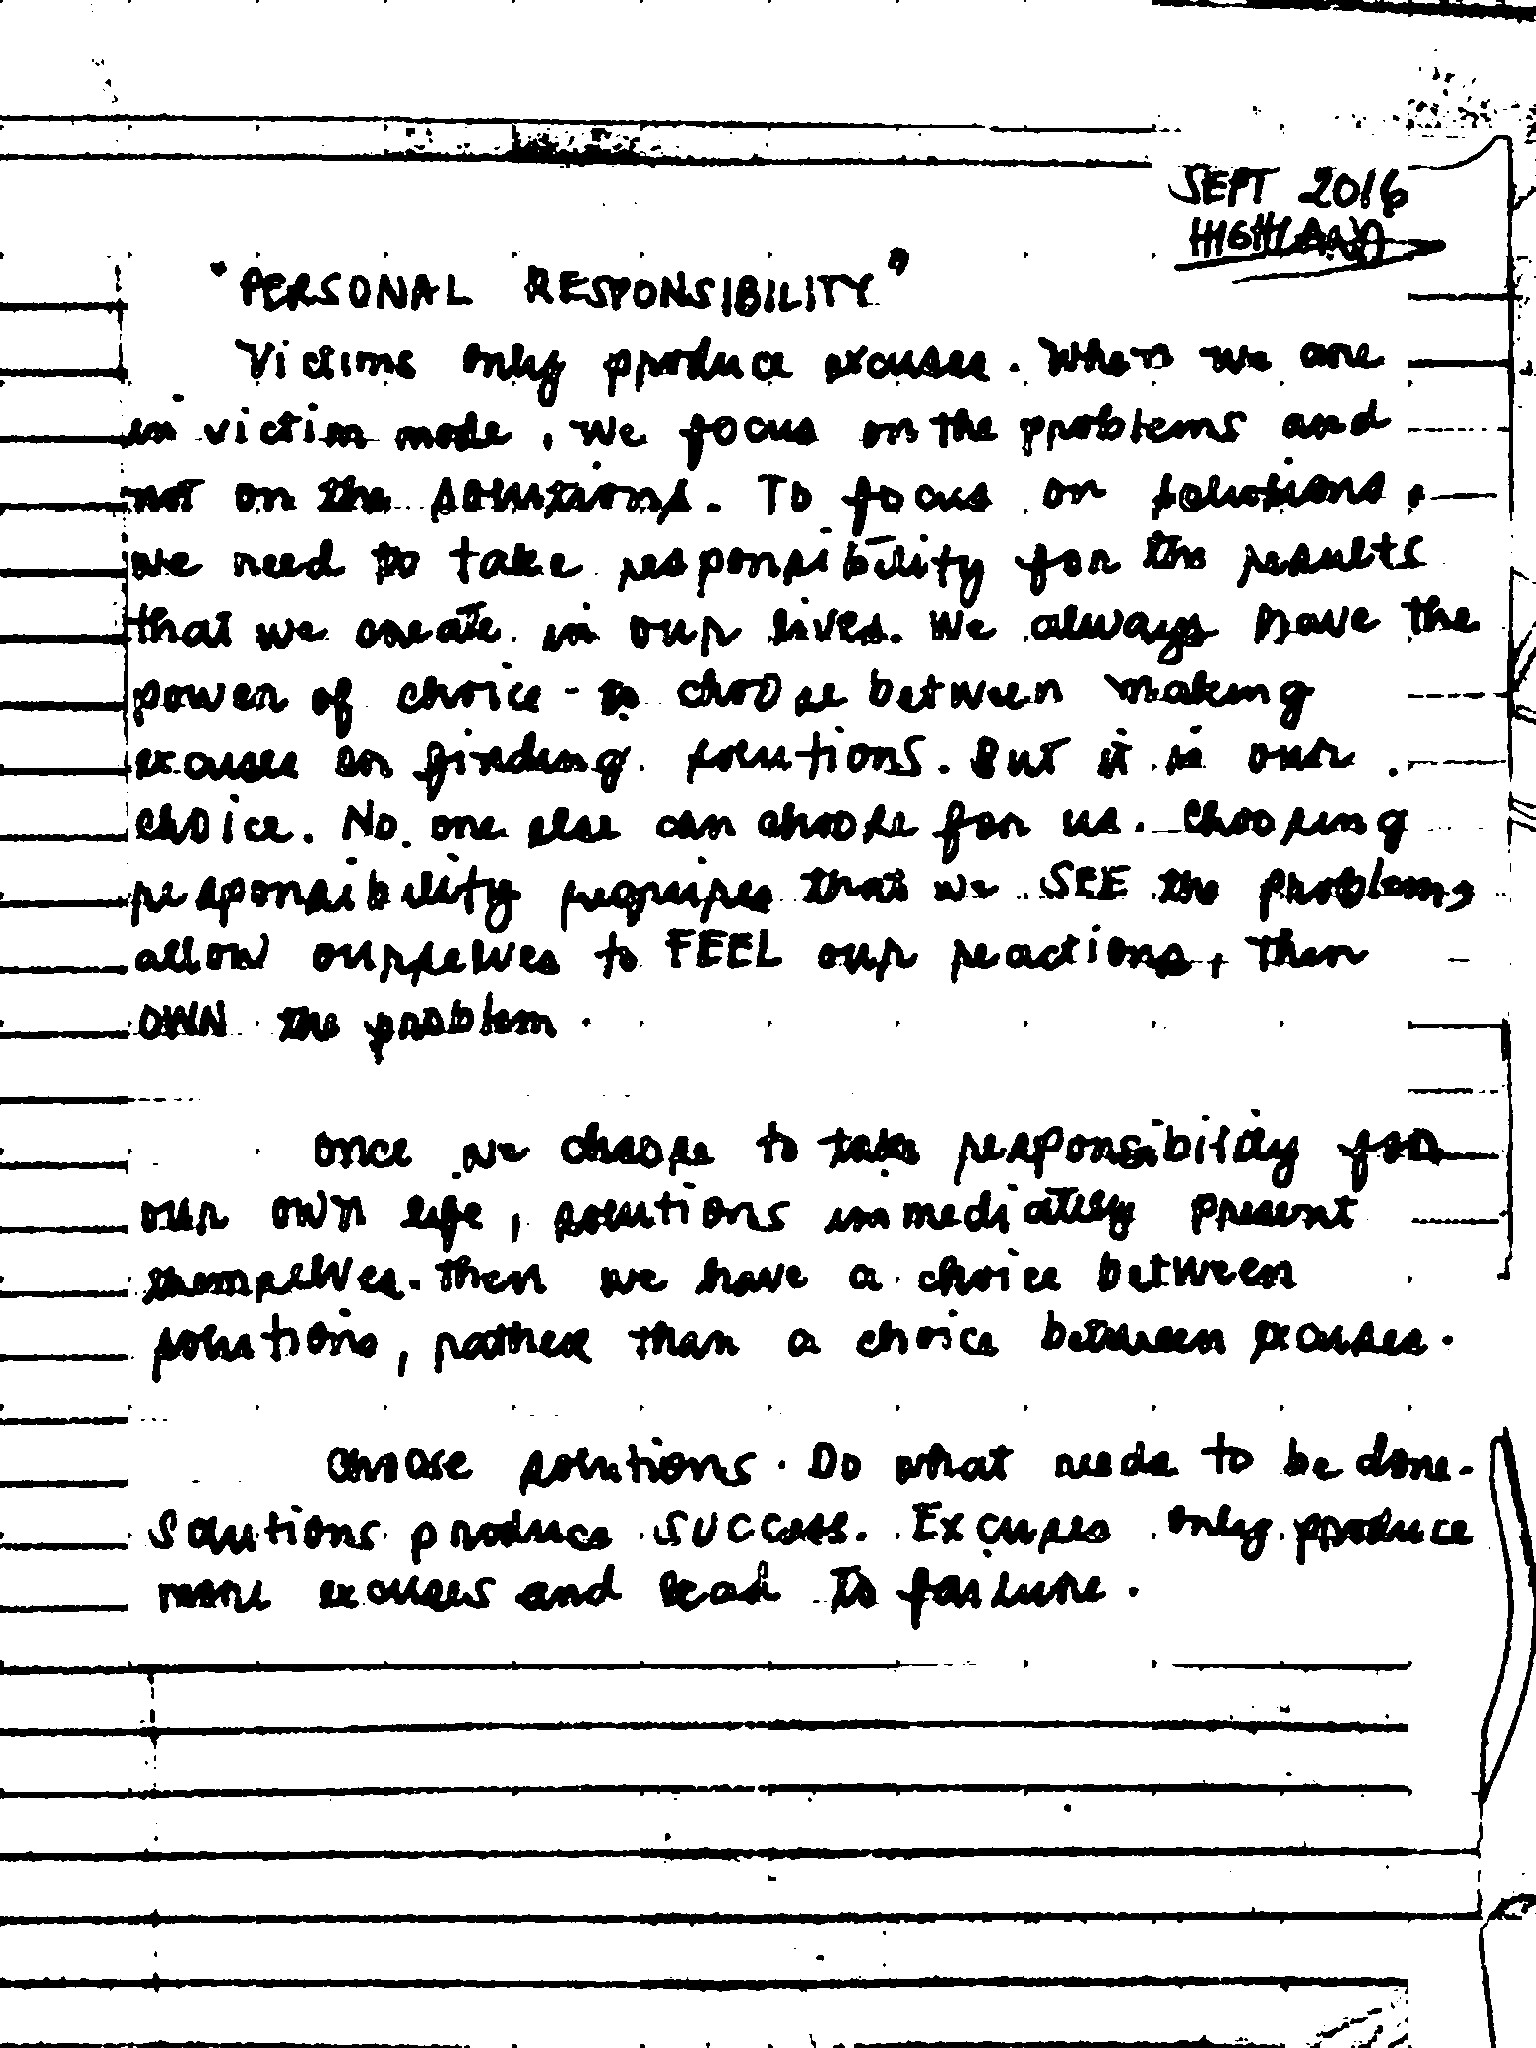 SEPT 2016
HIGHLAND
"PERSONAL RESPONSIBILITY"
Victims only produce excuses. When we are
in victim mode, we focus on the problems and
not on the solutions. To focus on solutions,
we need to take responsibility for the results
that we create in our lives. We always have the
power of choice - to choose between making
excuses or finding solutions. But it is our
choice. No one else can choose for us. Choosing
responsibility requires that we SEE the problem,
allow ourselves to FEEL our reactions, then
OWN the problem.
Once we choose to take responsibility for
our own life, solutions immediately present
themselves. Then we have a choice between
solutions, rather than a choice between excuses.
Choose solutions. Do what needs to be done.
Solutions produce success. Excuses only produce
more excuses and lead to failure.